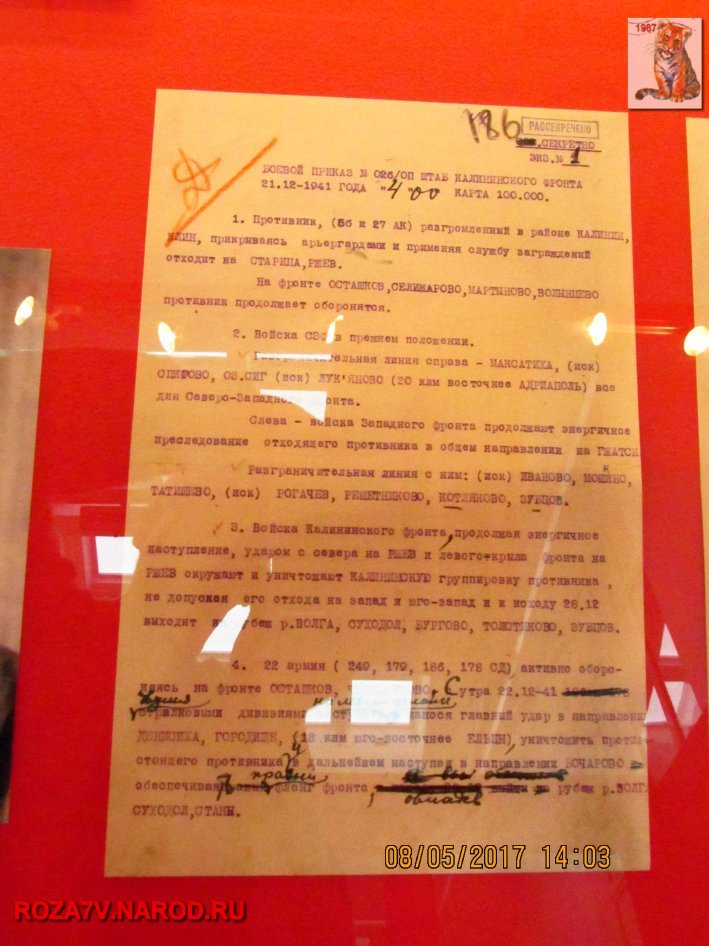 1987
186
РАССЕКРЕЧЕНО
СЕКРЕТНО
ЭКЗ.№ 1
БОЕВОЙ ПРИКАЗ № 026/ОП ШТАБ КАЛИНИНСКОГО ФРОНТА
21.12-1941 ГОДА "4 00 КАРТА 100.000.
1. Противник, (56 и 27 АК) разгромленный в районе КАЛИНИН,
КЛИН, прикрываясь арьергардами и применяя службу заграждений
отходит на СТАРИЦА,РЖЕВ.
На фронте ОСТАШКОВ,СЕЛИЖАРОВО,МАРТЫНОВО,ВОЛИНЦЕВО
противник продолжает оборонятся.
2. Войска СЗФ в прежнем положении.
линия справа - МАКСАТИХА, (иск)
СПИРОВО, ОЗ.СИГ (иск) ЛУК'ЯНОВО (20 клм восточнее АДРИАПОЛЬ) все
для Северо-Западного фронта.
Слева - войска Западного фронта продолжают энергичное
преследование отходящего противника в общем направлении на ГЖАТСК
Разграничительная линия с ним: (иск) ИВАНОВО, МОШИНО,
ТАТИЩЕВО, (иск) РОГАЧЕВ, РЕШЕТНИКОВО, КОТЛЯКОВО, ЗУБЦОВ.
3. Войска Калининского фронта, продолжая энергичное
наступление, ударом с севера на РЖЕВ и левого крыла фронта на
РЖЕВ окружают и уничтожают КАЛИНИНСКУЮ группировку противника,
не допуская его отхода на запад и юго-запад и к исходу 28.12
выходит на рубеж р.ВОЛГА, СУХОДОЛ, БУРГОВО, ТОЛСТИКОВО, ЗУБЦОВ.
4. 22 армия ( 249, 179, 186, 178 СД) активно оборо-
няясь на фронте ОСТАШКОВ, С утра 22.12-41
двумя на левом фланге
стрелковыми дивизиями нанося главный удар в направлении
ДЕНЕЖИХА, ГОРОДИЩЕ, (18 клм юго-восточнее ЕЛЬЦИ) уничтожить проти-
стоящего противника, в дальнейшем наступая в направлении КОЧАРОВО
крайний
обеспечивая фланг фронта, выйти на рубеж р.ВОЛГА
овладев
СУХОДОЛ,СТАНН.
08/05/2017 14:03
ROZA7V.NAROD.RU